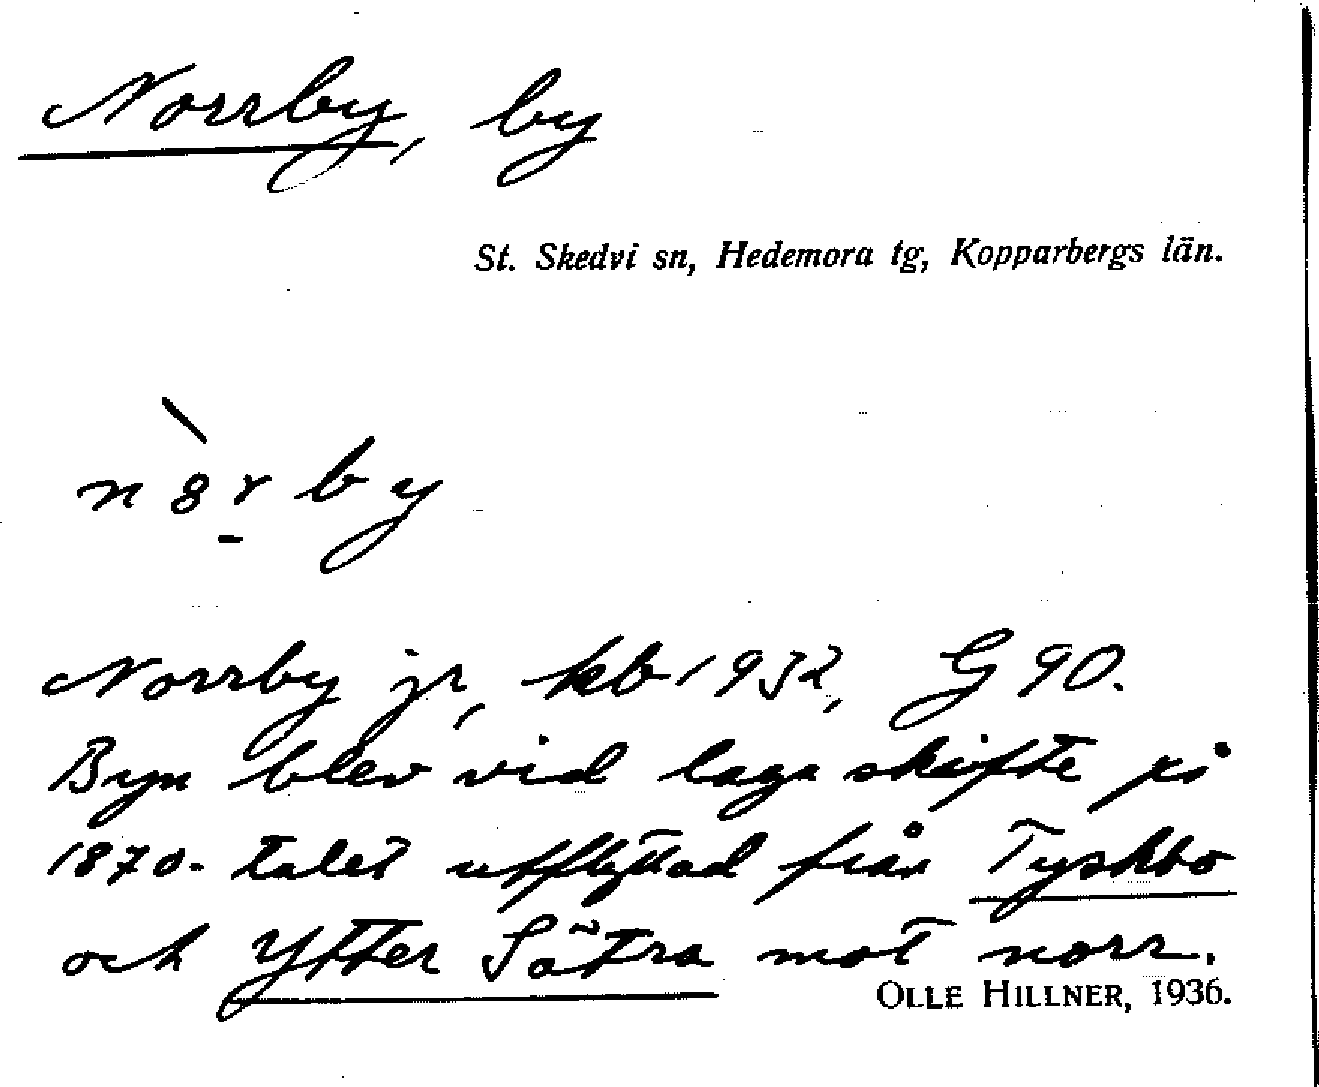 Norrby, by
St. Skedvi sn, Hedemora tg, Kopparbergs län.
Norrby jr, kb 1932, G 90.
Byn blev vid laga skifte på
1870-talet utflyttad från Tyskbo
och Ytter Sätra mot norr.
OLLE HILLNER, 1936.